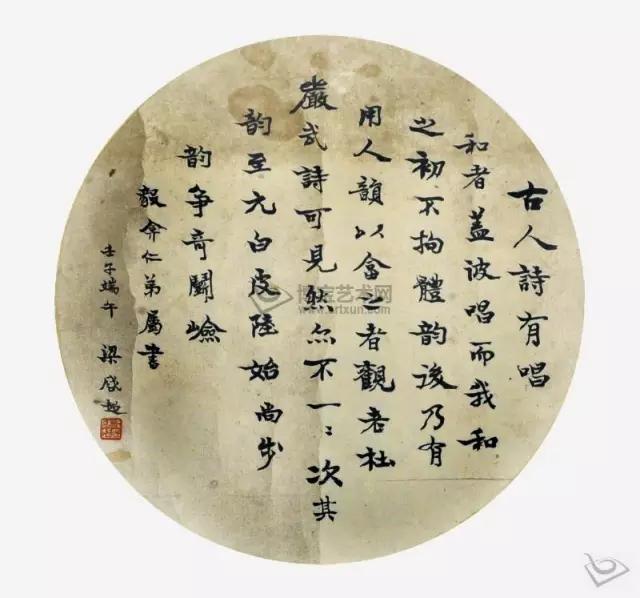 古人詩有唱
和者蓋彼唱而我和
之初不拘體韵後乃有
用人韻以畣之者觀老杜
嚴武詩可見然亦不一一次其
韵至元白皮陸始尚步
韵争奇鬭嶮
毅弇仁弟属書
壬子端午 梁啟超
博宝艺术网
www.artxun.com